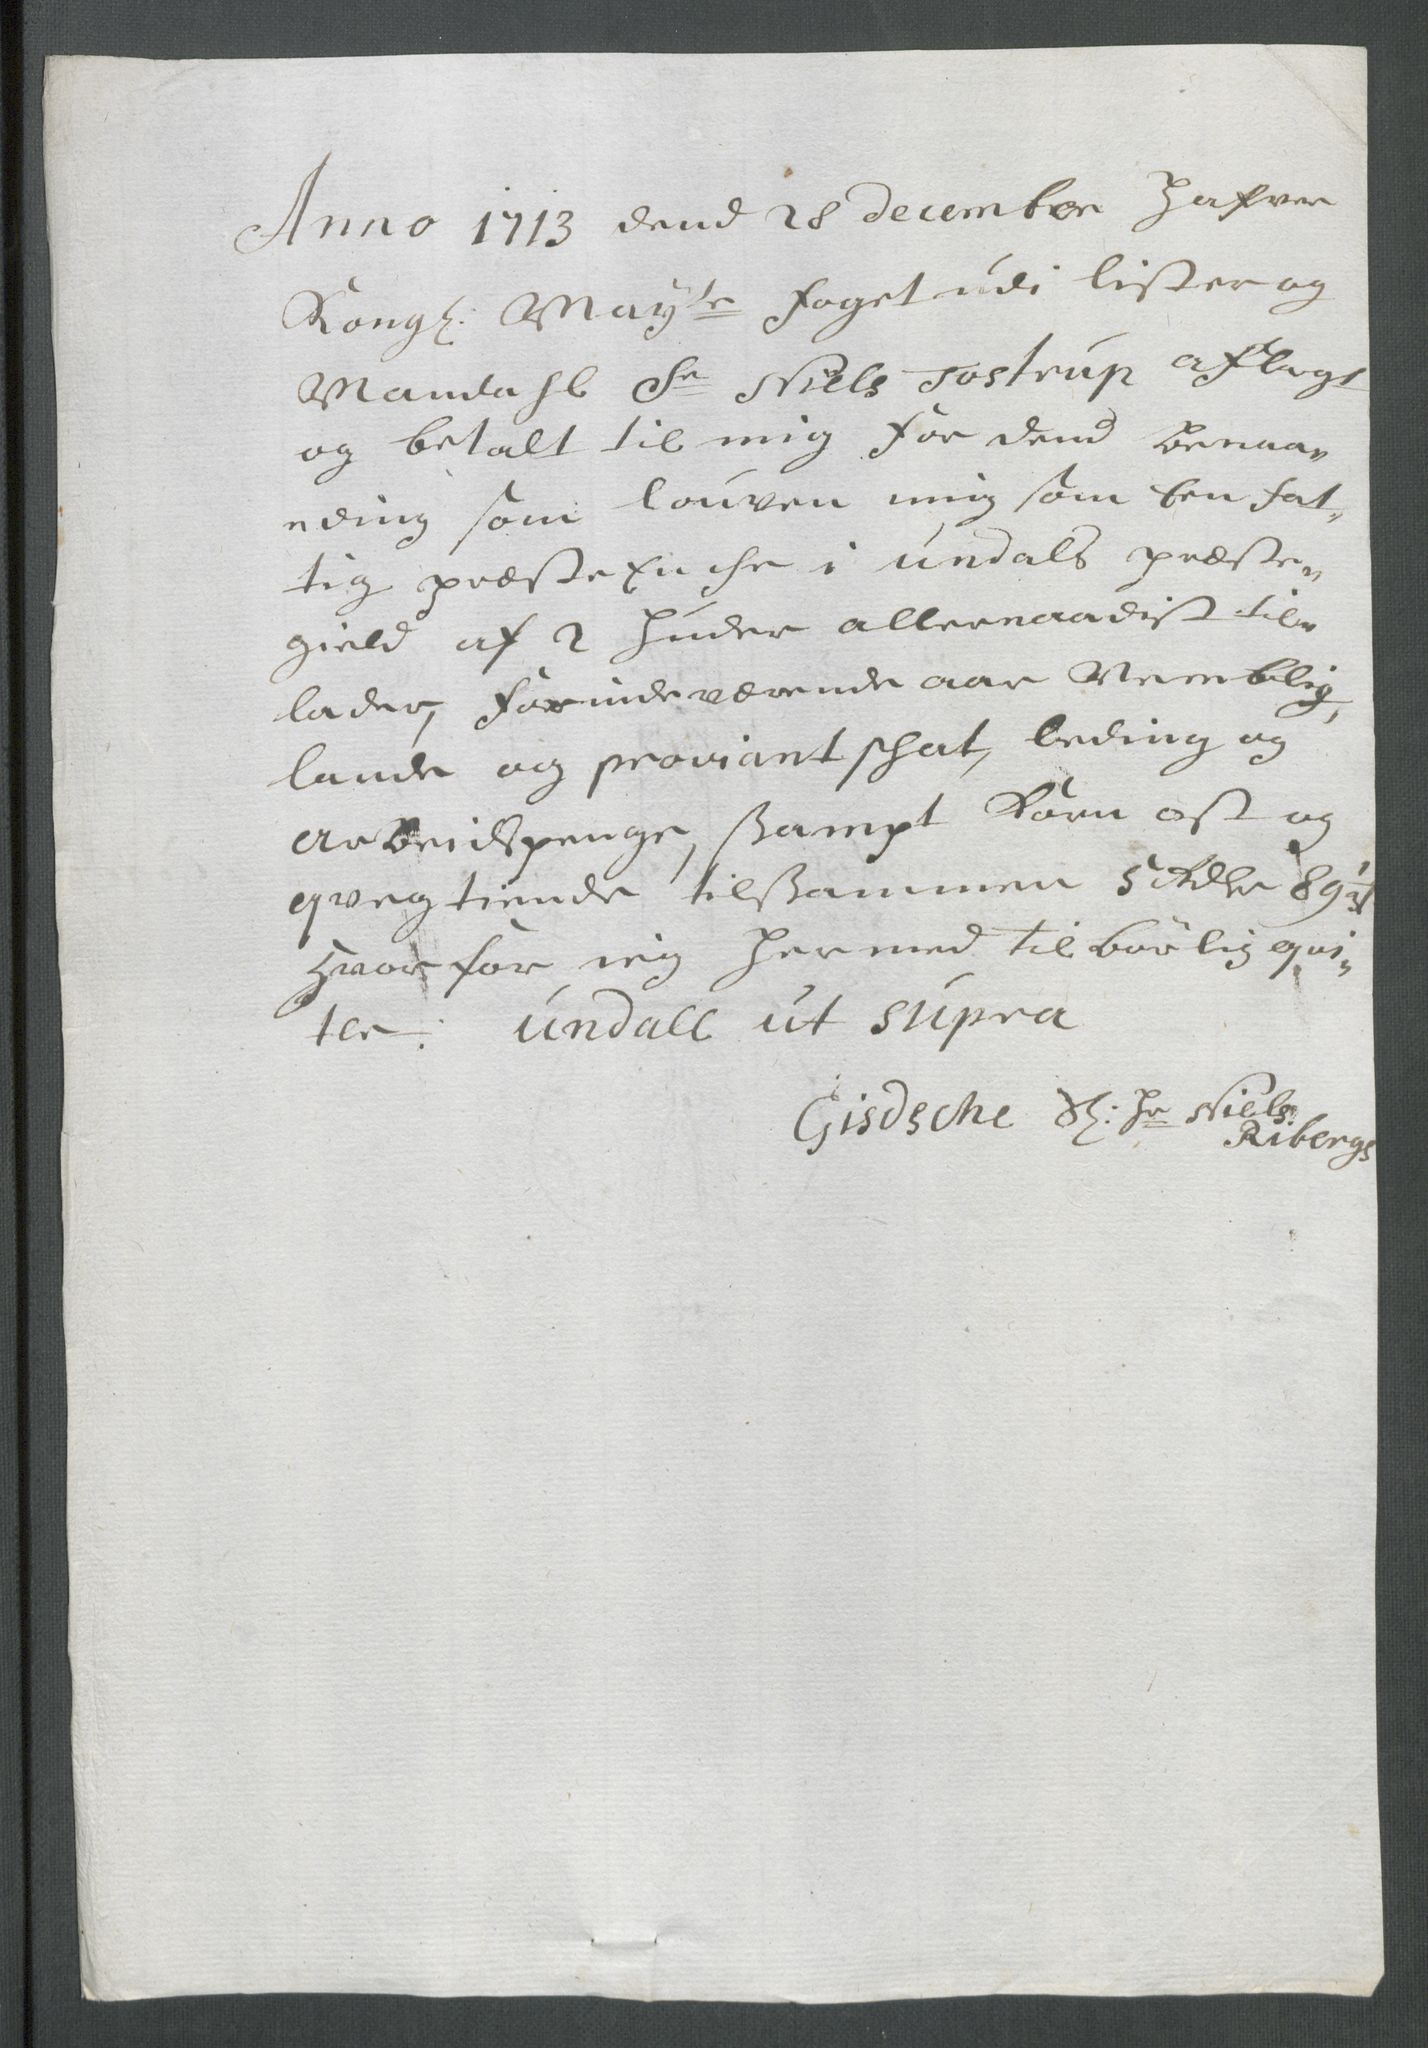 Anno 1713 dend 28 december hafver
Kongl: Mayte foget udi lister og
Mandahl Sr Niels Tostrup aflagt
og betalt til mig for dend benaa„
nding som louven mig som Een fat„
tig præste Enche i undals præste„
gield af 2 huder allernaadist til„
lader, for indeværende aar Nemblig,
lande og proviant schat, leding og
arbeidspenge, sampt Korn ost og
qvegtiende tilsammen 5 Rdlr 89
hvorfor ieg hermed tilbørlig qvi„
ter: undall ut supra
Gisdsche Sl: Hr Niels
Ribergs